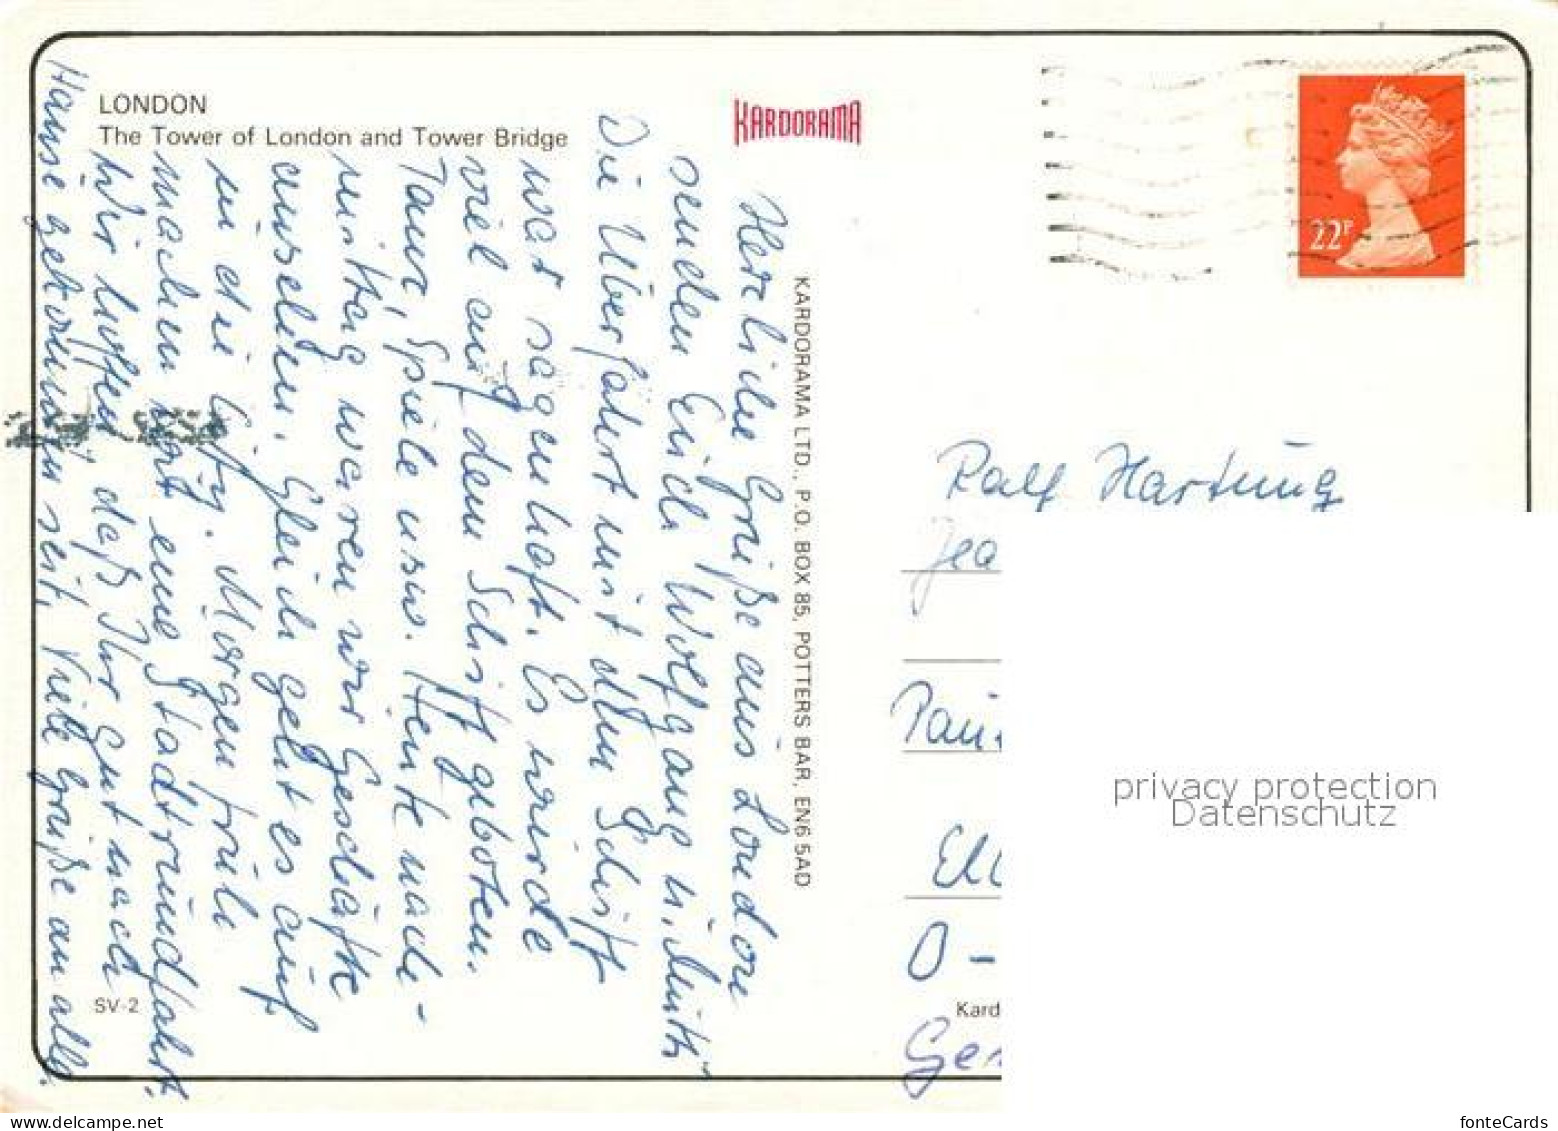 LONDON
The Tower of London and Tower Bridge
KARDORAMA
22P
KARDORAMA LTD., P.O. BOX 85, POTTERS BAR, EN6 5AD
Herzliche Grüße aus London
senden Euch Wolfgang u.
Die Überfahrt mit dem Schiff
war sagenhaft. Es wurde
viel auf dem Schiff geboten.
Tanz, Spiele usw. Heute nach-
mittag waren wir Geschäfte
ansehen. Gleich geht es auf
in die City. Morgen früh
machen wir eine Stadtrundfahrt.
Wir hoffen, daß Ihr gut nach
Hause gekommen seit. Viele Grüße an alle.
Ralf Hartung
Jea
Pau
Ell
O-
Ger
SV-2
Kard
privacy protection
Datenschutz
fonteCards